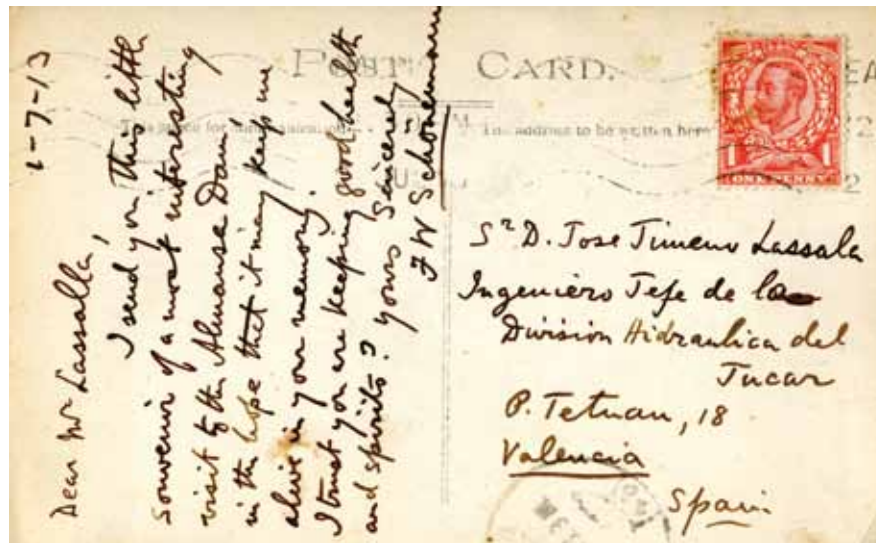 POST CARD.
This space for communication
The address to be written here
ONE PENNY
1 1
1-7-13
Dear Mr Lassalla,
I send you this little
souvenir of a most interesting
visit to the Almansa Dam,
in the hope that it may keep me
alive in your memory.
I trust you are keeping good health
and spirits? Yours sincerely
F W Schönemann
Sr D. Jose Jimeno Lassala
Ingeniero Jefe de la
Division Hidraulica del
Jucar
P. Tetuan, 18
Valencia
Spain